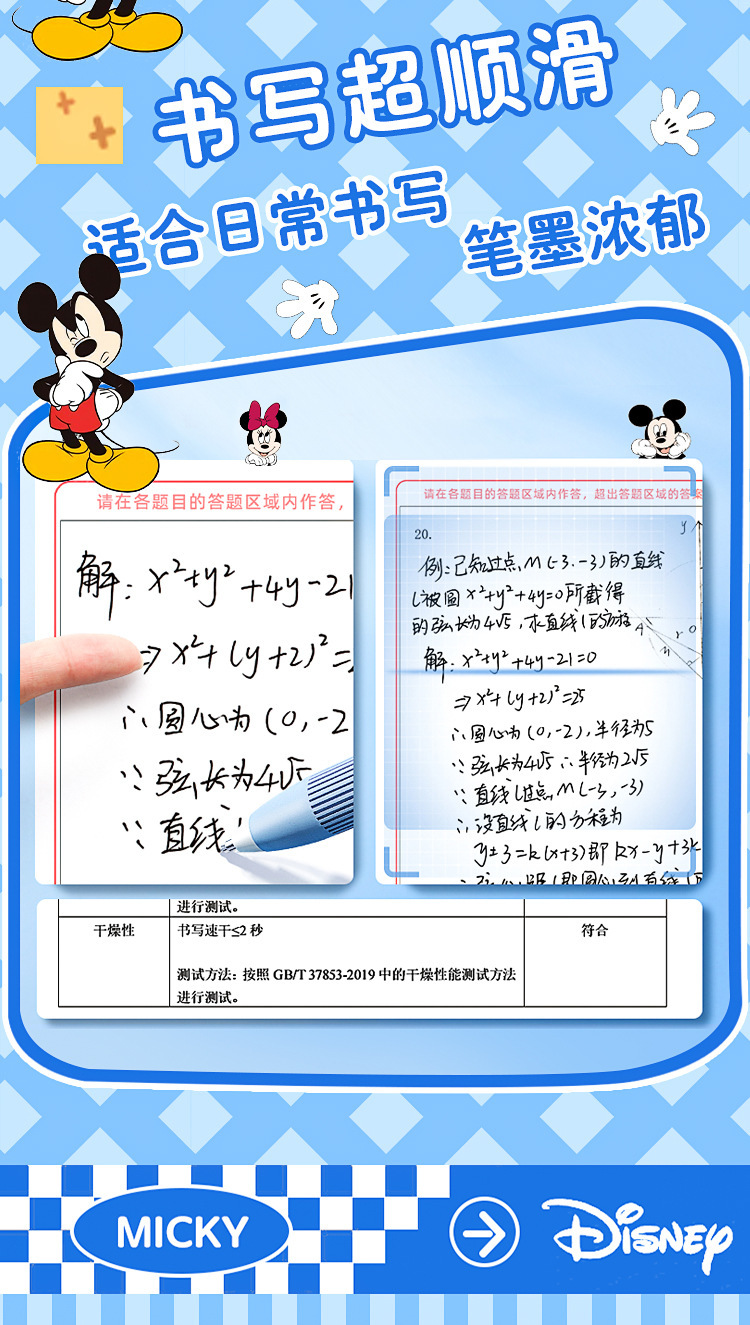 书写超顺滑
适合日常书写
笔墨浓郁
请在各题目的答题区域内作答，
解：x²+y²+4y-21
⇒x²+(y+2)²=
∴圆心为(0,-2
∵弦长为4√5
∵直线
请在各题目的答题区域内作答，超出答题区域的答案
20.
例：已知过点M(-3,-3)的直线
l被圆x²+y²+4y=0所截得
的弦长为4√5，求直线l的方程
解：x²+y²+4y-21=0
⇒x²+(y+2)²=25
∴圆心为(0,-2)，半径为5
∵弦长为4√5∴半径为2√5
∵直线l过点M(-3,-3)
∴设直线l的方程为
y±3=k(x+3)即kx-y+3k
y
A
r
O
M
进行测试。
干燥性
书写速干≤2秒
符合
测试方法：按照 GB/T 37853-2019 中的干燥性能测试方法
进行测试。
MICKY
Disney